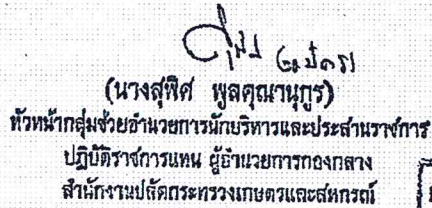 (นางสุพิศ พูลคุณานุกูร)
หัวหน้ากลุ่มช่วยอำนวยการนักบริหารและประสานราชการ
ปฏิบัติราชการแทน ผู้อำนวยการกองกลาง
สำนักงานปลัดกระทรวงเกษตรและสหกรณ์